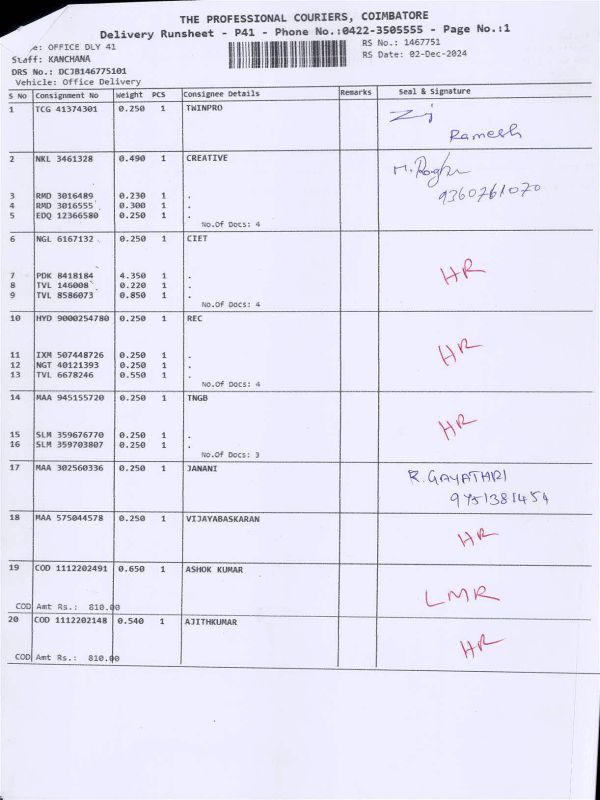 THE PROFESSIONAL COURIERS, COIMBATORE
Delivery Runsheet - P41 - Phone No.:0422-3505555 - Page No.:1
e: OFFICE DLY 41
RS No.: 1467751
Staff: KANCHANA
RS Date: 02-Dec-2024
DRS No.: DCJB146775101
Vehicle: Office Delivery
S No Consignment No Weight PCS Consignee Details Remarks Seal & Signature
1 TCG 41374301 0.250 1 TWINPRO
Ramesh
2 NKL 3461328 0.490 1 CREATIVE
9360761070
3 RMD 3016489 0.230 1 .
4 RMD 3016555 0.300 1 .
5 EDQ 12366580 0.250 1 .
No.Of Docs: 4
6 NGL 6167132 0.250 1 CIET
HR
7 PDK 8418184 4.350 1 .
8 TVL 146008 0.220 1 .
9 TVL 8586073 0.850 1 .
No.Of Docs: 4
10 HYD 9000254780 0.250 1 REC
HR
11 IXM 507448726 0.250 1 .
12 NGT 40121393 0.250 1 .
13 TVL 6678246 0.550 1 .
No.Of Docs: 4
14 MAA 945155720 0.250 1 TNGB
HR
15 SLM 359676770 0.250 1 .
16 SLM 359703807 0.250 1 .
No.Of Docs: 3
17 MAA 302560336 0.250 1 JANANI
R. GAYATHRI
9751381454
18 MAA 575044578 0.250 1 VIJAYABASKARAN
HR
19 COD 1112202491 0.650 1 ASHOK KUMAR
LMR
COD Amt Rs.: 810.00
20 COD 1112202148 0.540 1 AJITHKUMAR
HR
COD Amt Rs.: 810.00